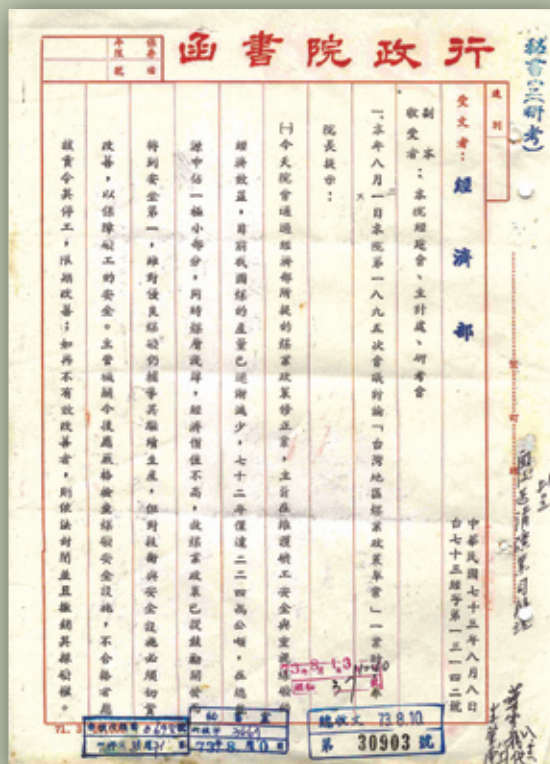 行政院書函
保存
年限
號
速別
受文者：經濟部
副本
收受者：本院經建會、主計處、研考會
中華民國七十三年八月八日
台七十三經字第一三一四二號
一、本年八月一日本院第一八九五次會議討論「台灣地區煤業政策草案」一案
院長提示：
㈠今天院會通過經濟部所提的煤業政策修正案，主旨在維護礦工安全與重視煤礦的
經濟效益，目前我國煤的產量已逐漸減少，七十二年僅達二二四萬公噸，在總能
源中佔一極小部分，同時煤層淺薄，經濟價值不高，故煤業政策已從鼓勵開發
轉到安全第一，雖對優良煤礦仍輔導其繼續生產，但對技術與安全設施必須切實
改善，以保障礦工的安全。主管機關今後應嚴格檢查煤礦安全設施，不合格者應
該責令其停工，限期改善；如再不有效改善者，則依法封閉並且撤銷其採礦權。
73.8.10
總收文
第 30903 號
71. 3